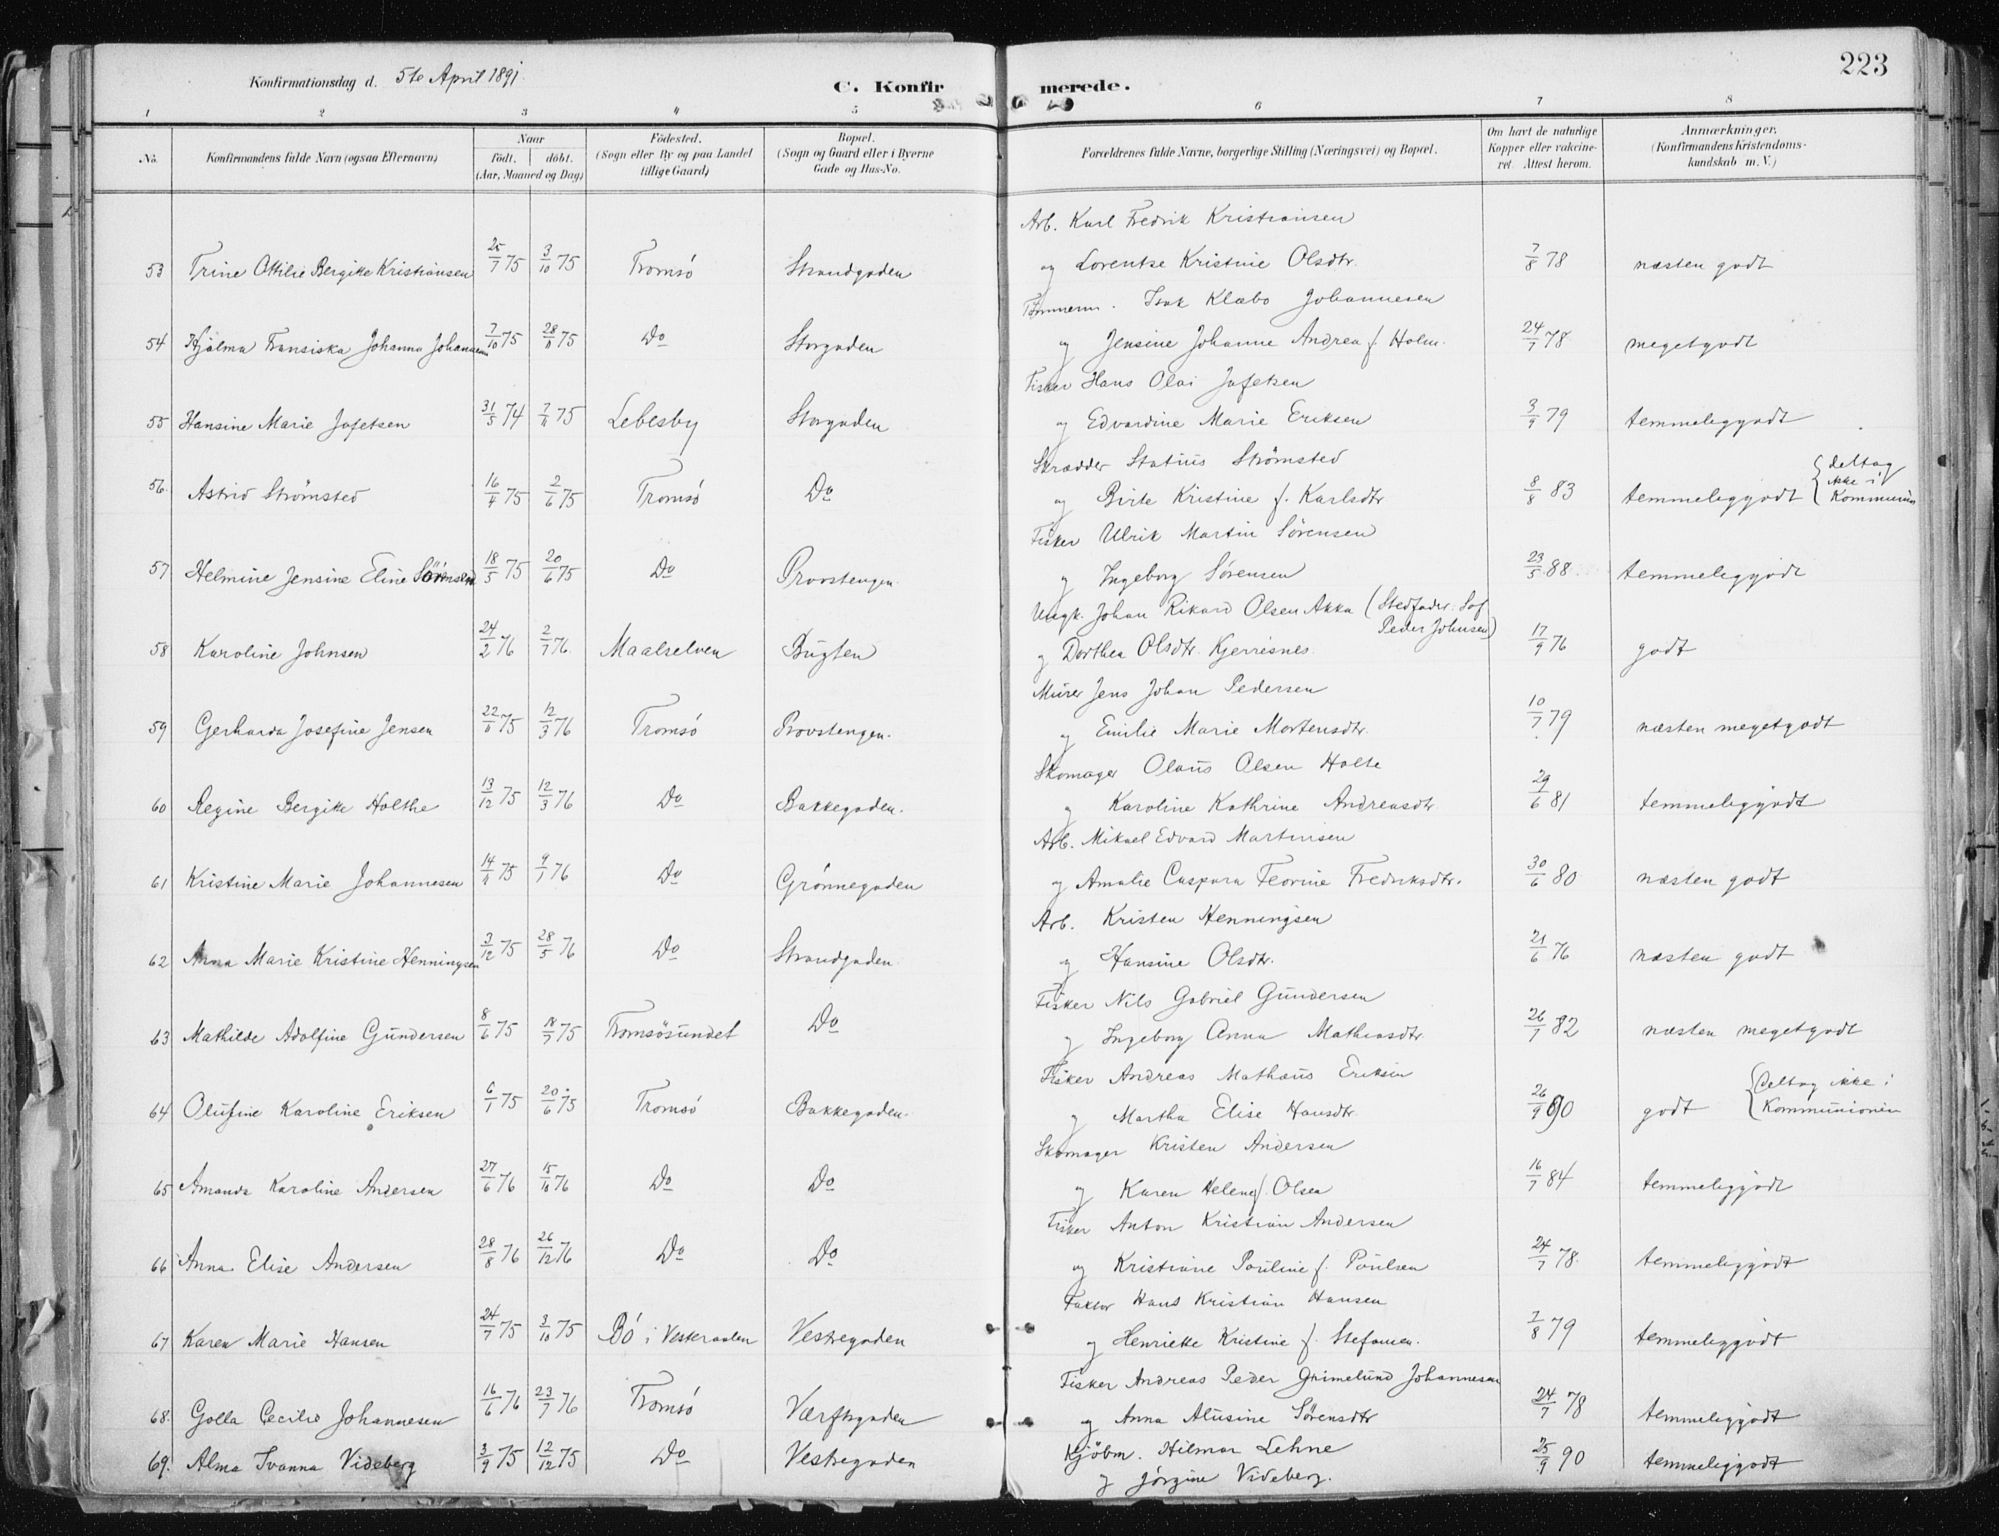 Konfirmationsdag d. 5te April 1891
C. Konfirmerede.
223
1 2 3 4 5 6 7 8
No. Konfirmandens fulde Navn (ogsaa Efternavn) Naar født. døbt. (Aar, Maaned og Dag) Fødested. (Sogn eller By og paa Landet tillige Gaard) Bopæl. (Sogn og Gaard eller i Byerne Gade og Hus-No. Forældrenes fulde Navne, borgerlige Stilling (Næringsvei) og Bopæl. Om havt de naturlige Kopper eller vakcineret. Attest herom. Anmærkninger. (Konfirmandens Kristendomskundskab m. V.)
Arb. Karl Fredrik Kristiansen
53 Trine Ottilie Bergitte Kristiansen 25/7 75 3/10 75 Tromsö Strandgaden og Lorentse Kristine Olsdtr. 7/8 78 næsten godt
Tømmerm. Isak Klæbo Johannesen
54 Hjalma Fransiska Johanna Johannesen 7/10 75 28/11 75 Do Storgaden og Jensine Johanne Andrea f. Holm. 24/7 78 megetgodt
Fisker Hans Olai Jafetsen
55 Hansine Marie Jafetsen 31/5 74 7/11 75 Lebesby Storgaden og Edvardine Marie Eriksen 3/9 79 temmeliggodt
Skrædder Statius Strömsted
56. Astrid Strömsted 16/4 75 2/6 75 Tromsö Do og Birte Kristine f. Karlsdtr 8/8 83 temmeliggodt { deltog ikke i Kommunion
Fisker Ulrik Martin Sörensen
57 Helmine Jensine Eline Sörensen 18/5 75 20/6 75 Do Provstengen. og Ingeborg Sörensen 23/5 88. temmeliggodt
Ungk. Johan Rikard Olsen Akka (Stedfader: Sof. Peder Johnsen)
58 Karoline Johnsen 24/2 76 2/7 76. Maalselven Bugten og Dorthea Olsdtr. Kjerresnes. 17/9 76 godt
Murer Jens Johan Pedersen
59 Gerharda Josefine Jensen 22/11 75 12/3 76 Tromsö Provstengen. og Emilie Marie Mortensdtr. 10/7 79 næsten megetgodt
Skomager Olaus Olsen Holte
60 Regine Bergitte Holthe 13/12 75 12/3 76 Do Bakkegaden. og Karoline Kathrine Andreasdtr. 29/6 81 temmeliggodt
Arb. Mikael Edvard Martinisen
61 Kristine Marie Johannesen 14/4 75 9/7 76 Do Grönnegaden og Amalie Caspara Feorine Fredriksdtr. 30/6 80 næsten godt
Arb. Kristen Henningsen
62 Anna Marie Kristine Henningsen 3/12 75 28/5 76 Do Strandgaden. og Hansine Olsdtr. 21/6 76 næsten godt
Fisker Nils Gabriel Gundersen
63 Mathilde Adolfine Gundersen 8/6 75 18/7 75 Tromsösundet Do og Ingeborg Anna Mathiasdtr. 26/7 82 næsten megetgodt
Fisker Andreas Mathæus Eriksen
64 Olufine Karoline Eriksen 6/1 75 20/6 75 Tromsö Bakkegaden. og Martha Elise Hansdtr. 26/9 90 godt { Deltog ikke i Kommunionen
Skomager Kristen Andersen
65 Amanda Karoline Andersen 27/6 76 15/10 76 Do Do og Karen Helene f. Olsen 16/7 84 temmeliggodt
Fisker Anton Kristian Andersen
66 Anna Elise Andersen 28/8 76 26/12 76 Do Do og Kristiane Pauline f. Poulsen 24/7 78. temmeliggodt
Faktor Hans Kristian Hansen
67 Karen Marie Hansen 24/7 75 3/10 75 Bö i Vesteraalen Vestregaden og Henriette Kristine f. Stefansen. 7/8 79 temmeliggodt
Fisker Andreas Peder Grimelund Johannesen
68. Golla Cecilie Johannesen 16/6 76 23/7 76 Tromsö Værftsgaden og Anna Alusine Sörensdtr 24/7 78 temmeliggodt
69. Alma Ivanna Videberg 3/9 75 12/12 75 Do Vestregaden Kjöbm. Hilmar Lehne 25/9 90 temmeliggodt
og Jörgine Videberg.